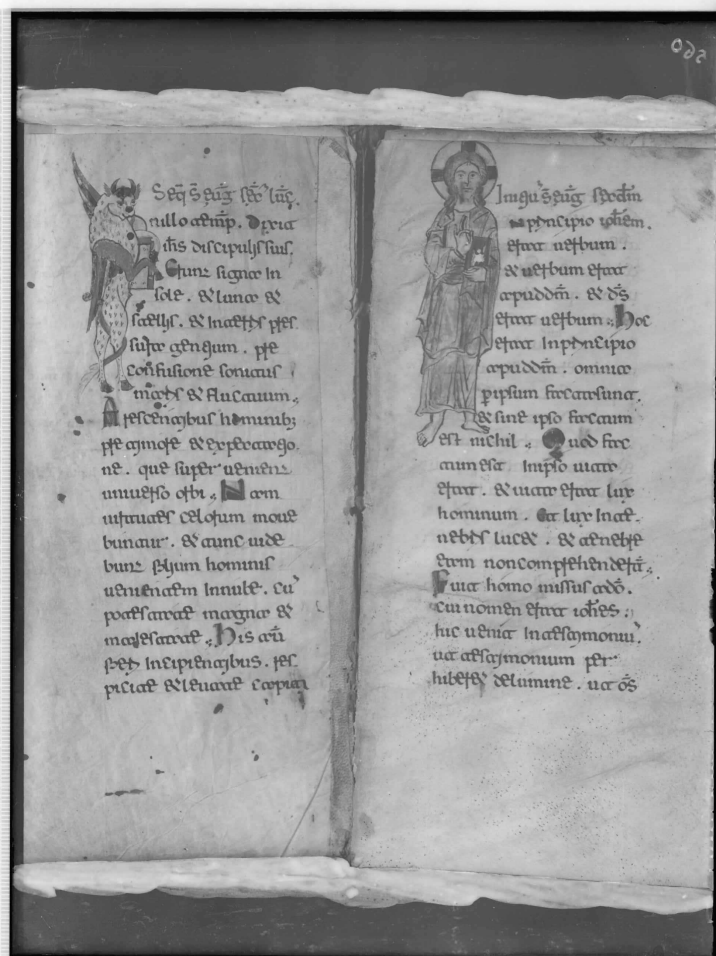 Seq̄ S. eug̅ sec̄ luc̄.
n illo temp̄. Dixit
ih̄s discipulis suis.
Erunt signa in
sole. & luna &
stellis. & in terris pres
sura gentium. pre
confusione sonitus
maris & fluctuum.
Arescentibus hominib;
pre timore & expectatio
ne. que super uenient
uniuerso orbi. Nam
uirtutes celorum moue
buntur. & tunc uide
bunt filium hominis
uenientem in nube. cu̅
potestate magna &
maiestate. His aut̄
fieri incipientibus. res
picite & leuate capita
Initiū s. eug̅ sec̄dm
n principio ioh̄em.
erat uerbum.
& uerbum erat
apud dm̄. & ds̄
erat uerbum. Hoc
erat in principio
apud dm̄. omnia
p ipsum facta sunt.
& sine ipso factum
est nichil. Quod fac
tum est in ipso uita
erat. & uita erat lux
hominum. Et lux in te
nebris lucet. & tenebre
eam non comprehenderūt.
Fuit homo missus a dō.
cui nomen erat ioh̄es.
hic uenit in testimoniū.
ut testimonium per
hiberet de lumine. ut om̄s
095